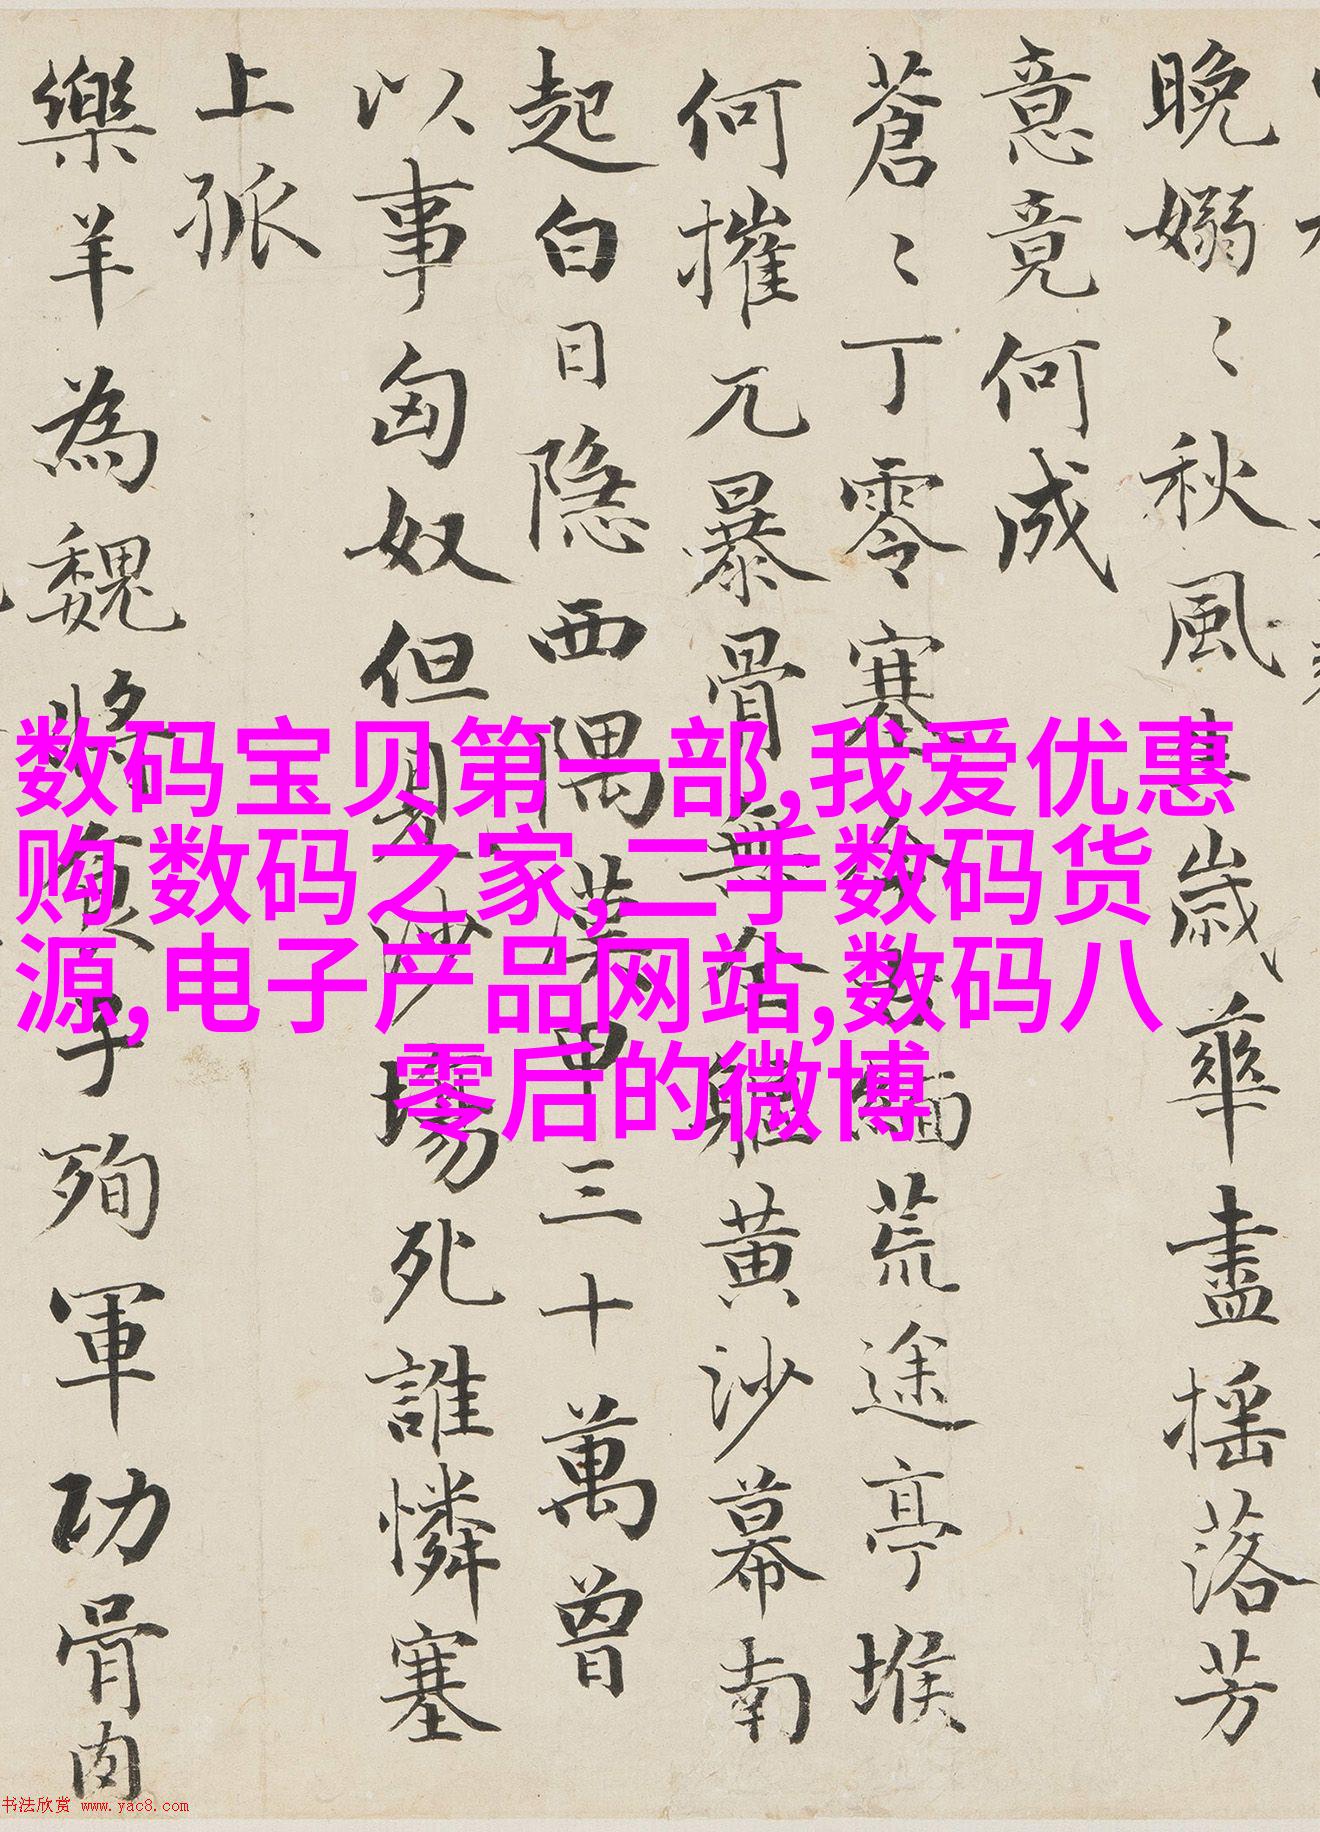 晚嫋〻秋風生歲華盡摇落芳
意竟何成
蒼〻丁零塞今古緬荒途亭堠
何摧兀暴骨無全軀黄沙幕南
起白日隐西隅漢甲三十萬曾
以事匈奴但見沙場死誰憐塞
上孤
樂羊為魏將食子殉軍功骨肉
数码宝贝第一部,我爱优惠
购,数码之家,二手数码货
源,电子产品网站,数码八
零后的微博
书法欣赏 www.yac8.com